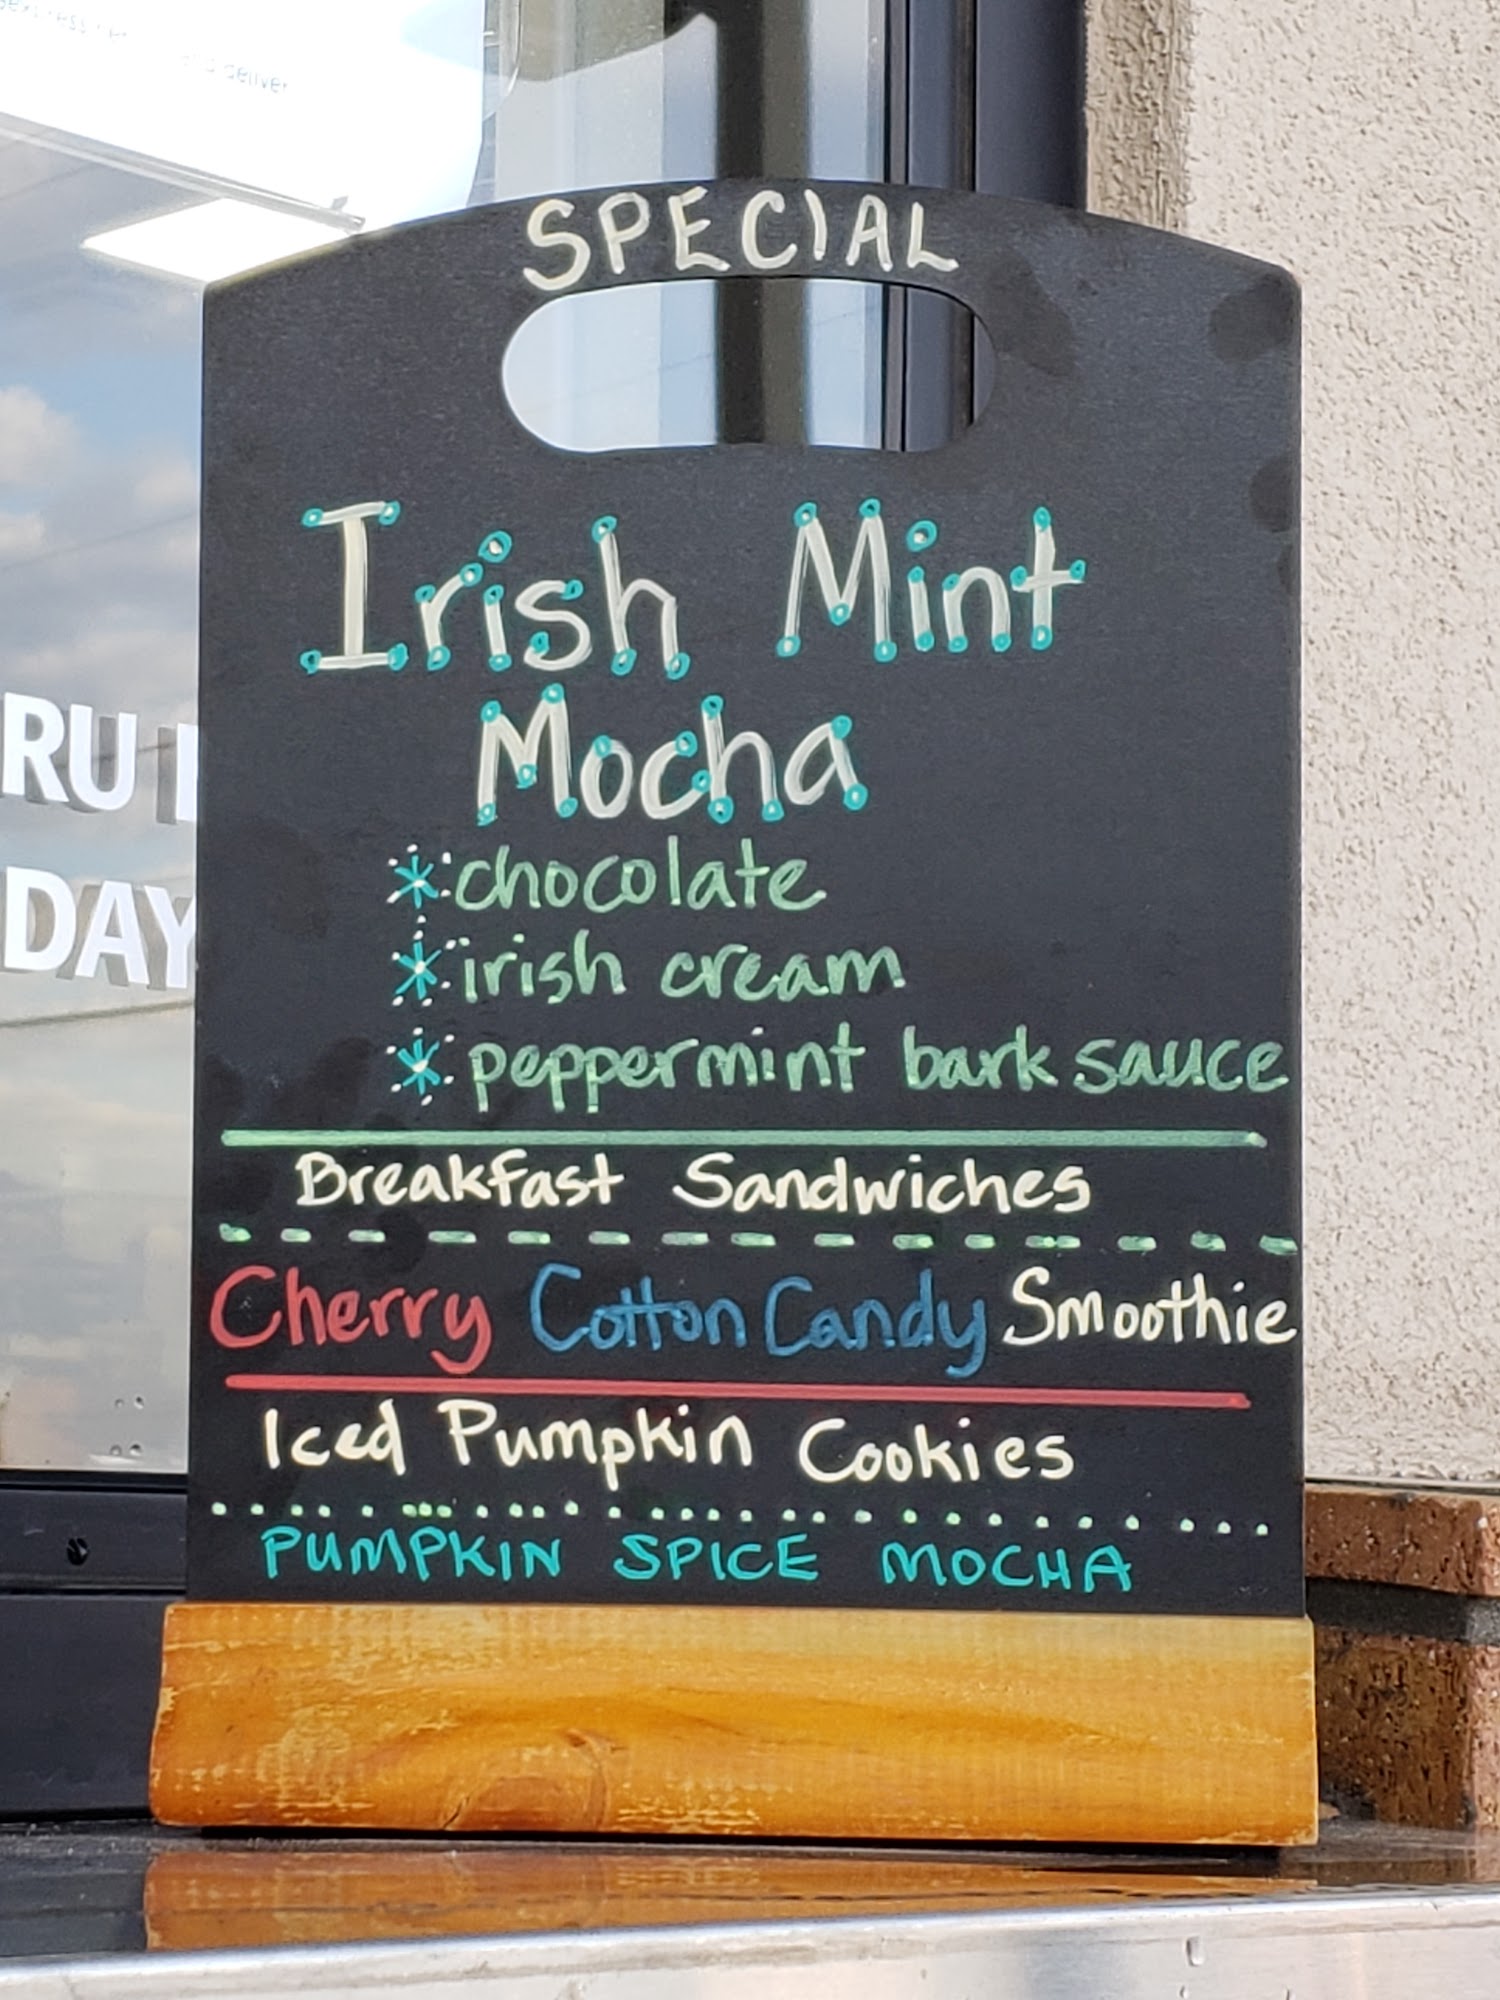 deliver
SPECIAL
Irish Mint
Mocha
* chocolate
* irish cream
* peppermint bark sauce
Breakfast Sandwiches
Cherry Cotton Candy Smoothie
Iced Pumpkin Cookies
PUMPKIN SPICE MOCHA
RU
DAY